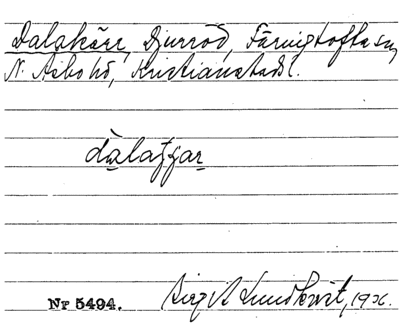 Dalakärr, Djurröd, Färingtofta sn,
N. Åsbo hd, Kristianstads l.
dalatjar
Nr 5494. Birgit Lundkvist, 1926.